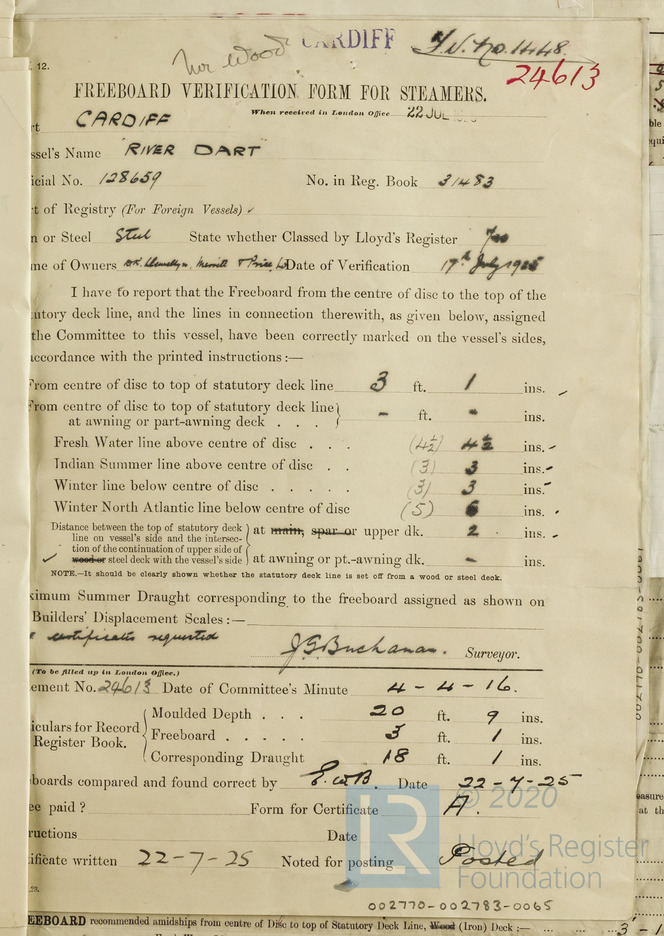 Mr Wood CARDIFF F.V. No. 1448.
12.
24613
FREEBOARD VERIFICATION FORM FOR STEAMERS.
When received in London Office 22 JUL
rt CARDIFF
ssel's Name RIVER DART
icial No. 128659 No. in Reg. Book 31483
t of Registry (For Foreign Vessels) ✓
n or Steel Steel State whether Classed by Lloyd's Register Yes
me of Owners Llewellyn, Merrett & Price, Ld Date of Verification 17th July 1925
I have to report that the Freeboard from the centre of disc to the top of the
utory deck line, and the lines in connection therewith, as given below, assigned
the Committee to this vessel, have been correctly marked on the vessel's sides,
accordance with the printed instructions :—
From centre of disc to top of statutory deck line 3 ft. 1 ins.
From centre of disc to top of statutory deck line
at awning or part-awning deck . . . - ft. - ins.
Fresh Water line above centre of disc . . . (4½) 4½ ins.
Indian Summer line above centre of disc . . (3) 3 ins.
Winter line below centre of disc . . . . . (3) 3 ins.
Winter North Atlantic line below centre of disc (5) 6 ins.
Distance between the top of statutory deck
line on vessel's side and the intersec-
tion of the continuation of upper side of
wood or steel deck with the vessel's side
at main, spar or upper dk. 2 ins.
✓ at awning or pt.-awning dk. - ins.
NOTE.—It should be clearly shown whether the statutory deck line is set off from a wood or steel deck.
ximum Summer Draught corresponding to the freeboard assigned as shown on
Builders' Displacement Scales :—
certificates requested
J.G. Buchanan. Surveyor.
(To be filled up in London Office.)
ement No. 24613 Date of Committee's Minute 4-4-16.
iculars for Record
Register Book.
Moulded Depth . . . 20 ft. 9 ins.
Freeboard . . . . . 3 ft. 1 ins.
Corresponding Draught 18 ft. 1 ins.
boards compared and found correct by E.W.B. Date 22-7-25
ee paid ? Form for Certificate A.
ructions Date
ificate written 22-7-25 Noted for posting Posted
LR © 2020
Lloyd's Register
Foundation
002770-002783-0065
EEBOARD recommended amidships from centre of Disc to top of Statutory Deck Line, Wood (Iron) Deck :— 3 - 1